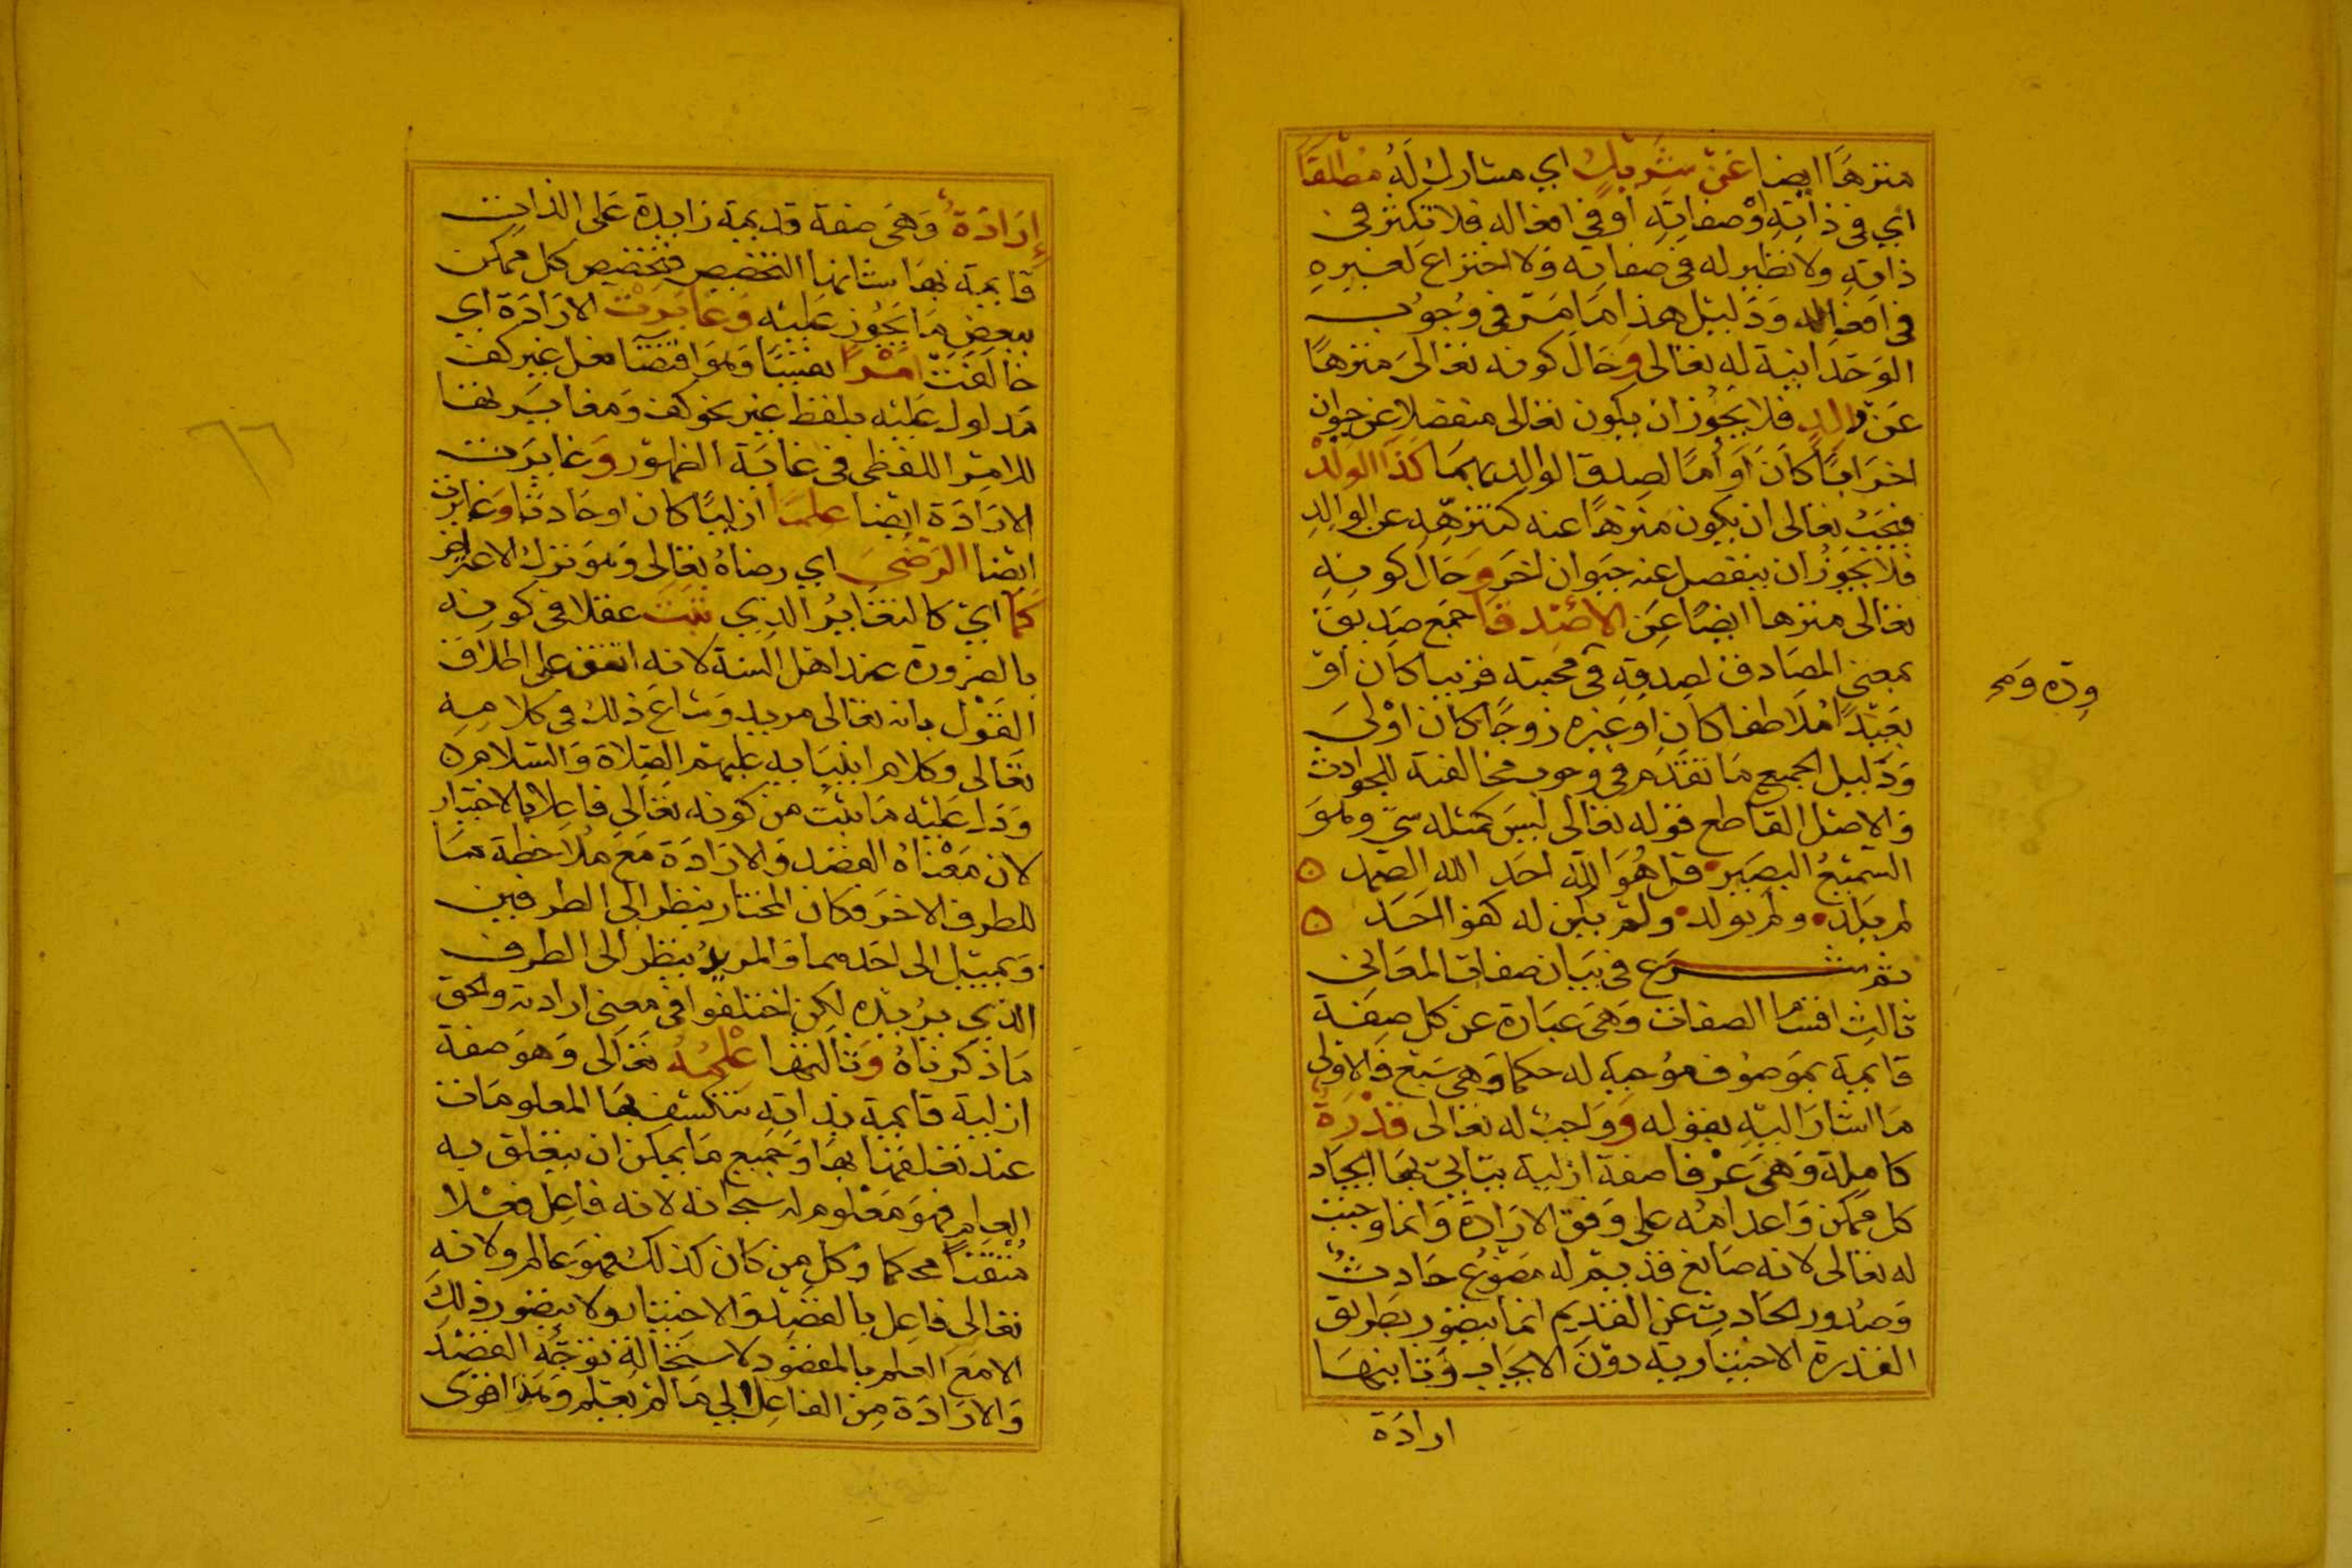 منزها ايضا عَنْ شَرِيْكٍ اي مشارك لَهُ مُطْلَقًا
اي في ذاتِهِ اوْ صفاتِهِ او في افعاله فلا تكثر في
ذاتِهِ ولا نظير له في صفاته وَلا اختراع لغيرهِ
في افعاله وَدَليل هذا مَا مَرّ في وجُوب
الوَحدَانية له تعالى وَحَال كونه تعالىَ منزهًا
عَنْ والد فلا يَجُوز ان يكون تعالى منفصلا عن حيوان
اخرَ ابًا كانَ أوْ أمًا لصدق الوالد بهما كَذَا الوَلَدْ
فيَجبُ تعالى ان يكون منزهًا عنه كتنزهِهِ عن الوالِدِ
فلا يجوزُ ان ينفصل عنه حيوان اخرَ وَحَال كونِهِ
تعالى منزها ايضًا عَنِ الاصْدِقَا جمَع صَديق
بمعنى المصَادف لصدقِهِ في محبته قريبا كان أوْ
بَعيدًا مُلاطفا كان اوغيره زوجًا كان اوْلىَ
وَدَليل الجميع مَا تقدم في وجوب مخالفته للحوادث
وَالاصْل القاطع قوله تعالى ليسَ كمثله شيّ وهوَ
السّميعُ البصَير قل هُوَ الله احَد الله الصّمد
لم يَلد ولم يولد ولم يكن له كفوا احَد
ثم شرَع في بيَان صفات المعَاني
ثالث اقسام الصفات وَهيَ عبَارة عن كل صِفَة
قايمة بمَوصُوف مُوجبة له حكما وَهي سَبْع فالاولى
مَا اشارَ اليْهِ بقوله وَوَاجبٌ له تعالى قُدْرَةٌ
كاملة وَهيَ عرْفا صفة ازلية يتاتى بهَا ايجَاد
كل ممكن وَاعدامُه على وَفق الارَادَة وَانما وجبَت
له تعالى لانه صَانع قديم له مصْنُوع حَادِثٌ
وَصُدُور الحَادِث عن القديم انما يتصُور بطريق
القدرة الاختيارية دوْنَ الايجَاب وَثانيهَا
ارادَة
وده وَمح
إرَادَةٌ وَهيَ صفة قديمة زَايدة عَلى الذات
قايمة بهَا شانها التخصيص فتخصيص كل ممكن
ببعض مَا يَجُوز عَليْه وَغايرَتْ الارَادَة اي
خالفتْ امْرًا نفسيًا وَهوَ اقتضَا فعل غير كف
مَدلول عَليْه بلفظ غير نحو كف وَمغايرتها
للامْر اللفظي في غايَة الظهوْر وَغايرَت
الارَادَة ايضا عِلْمًا ازليًا كان اوحَادثا وَغايرت
ايضا الرّضَىَ اي رضاهُ تعَالى وَهوَ ترك الاعتراض
كَمَا ايْ كالتغَايرُ الذي ثَبَتَ عقلا في كونِه
بالضرورة عند اهل السنة لانه اتفق على اطلاق
القوْل بانه تعالى مريد وَشاعَ ذلك في كلامِهِ
تعَالى وَكلام انبيَايه عليهم الصّلاة وَالسّلام
وَدَل عَليْه مَا ثبت من كونه تعَالى فاعلا بالاختيار
لان مَعْناهُ القصْد وَالارَادَة مَع مُلاحظة مَا
للطرف الاخرَ فكان المختار ينظر الى الطرفين
وَيميل الى احَدهما وَالمريدُ ينظر الى الطرف
الذي يُريده لكن اختلفوا في معنى ارادته والحق
مَا ذكرناهُ وَثالثها عِلْمُهُ تعَالى وَهوَ صفة
ازلية قايمة بذاته تنكشف بهَا المعلومَات
عند تعَلقها بهَا وَجَميع مَا يمكن ان يتعَلق به
العلم فهوَ مَعْلوم له سبحَانه لانه فاعل فعْلا
مُتْقنا محكما وَكل من كان كذلك فهوَ عالم ولانه
تعالى فاعل بالقصْد وَالاختيار ولا يتصَور ذلكَ
الا مَع العلم بالمقصُود لاسْتحَالة توَجّه القصْد
وَالارَادَة مِن الفاعِل الى مَا لمْ يعْلم وَهَذَا اقوى